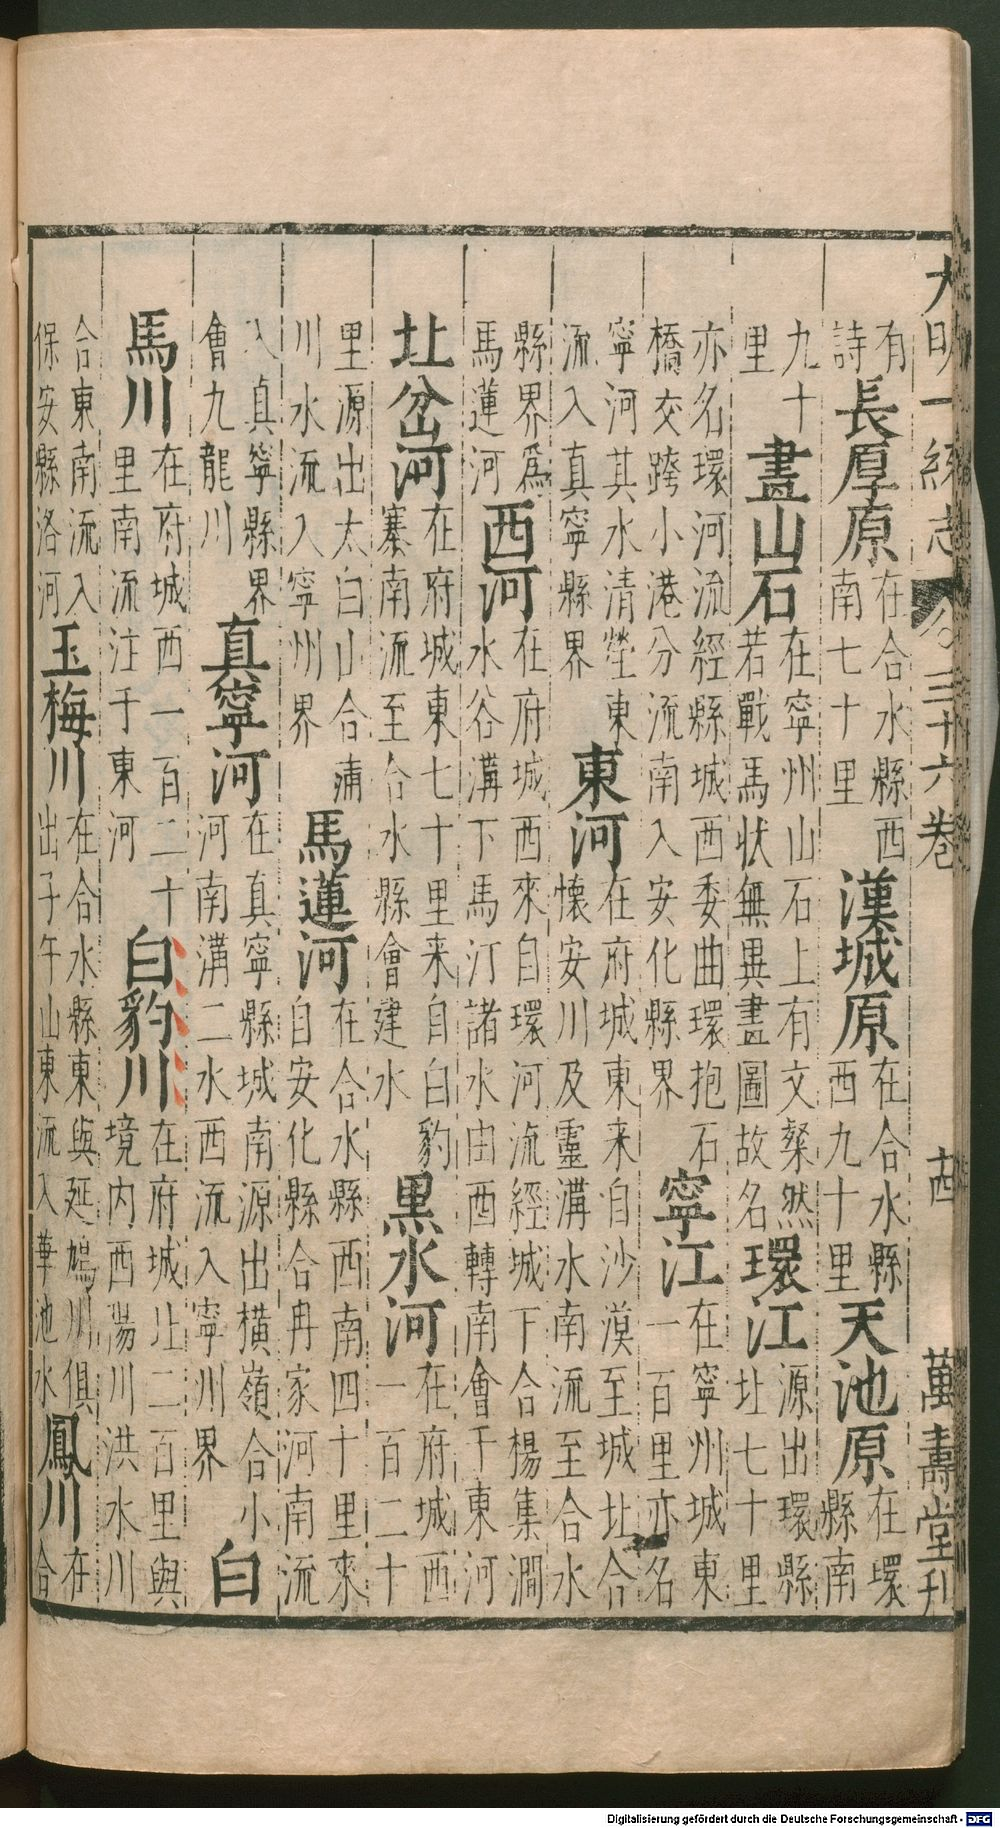 大明一統志 三十六卷 十四 萬壽堂刊
有詩 長厚原 在合水縣西南七十里 漢城原 在合水縣西九十里 天池原 在環縣南
九十里 畫山石 在寧州山石上有文粲然若戰馬状無異畫圖故名 環江 源出環縣北七十里
亦名環河流經縣城西委曲環抱石橋交跨小港分流南入安化縣界 寧江 在寧州城東一百里亦名
寧河其水清瑩東流入真寧縣界 東河 在府城東来自沙漠至城北合懷安川及靈溝水南流至合水
縣界爲馬蓮河 西河 在府城西來自環河流經城下合楊集澗水谷溝下馬汀諸水由酉轉南會于東河
北岔河 在府城東七十里来自白豹寨南流至合水縣會建水 黑水河 在府城西一百二十
里源出太白山合蒲川水流入寧州界 馬蓮河 在合水縣西南四十里來自安化縣合冉家河南流
入真寧縣界會九龍川 真寧河 在真寧縣城南源出橫嶺合小河南溝二水西流入寧川界 白
馬川 在府城西一百二十里南流注于東河 白豹川 在府城北二百里與境内西陽川洪水川
合東南流入保安縣洛河 玉梅川 在合水縣東與延鳩川俱出子午山東流入華池水 鳳川 在合
Digitalisierung gefördert durch die Deutsche Forschungsgemeinschaft - DFG